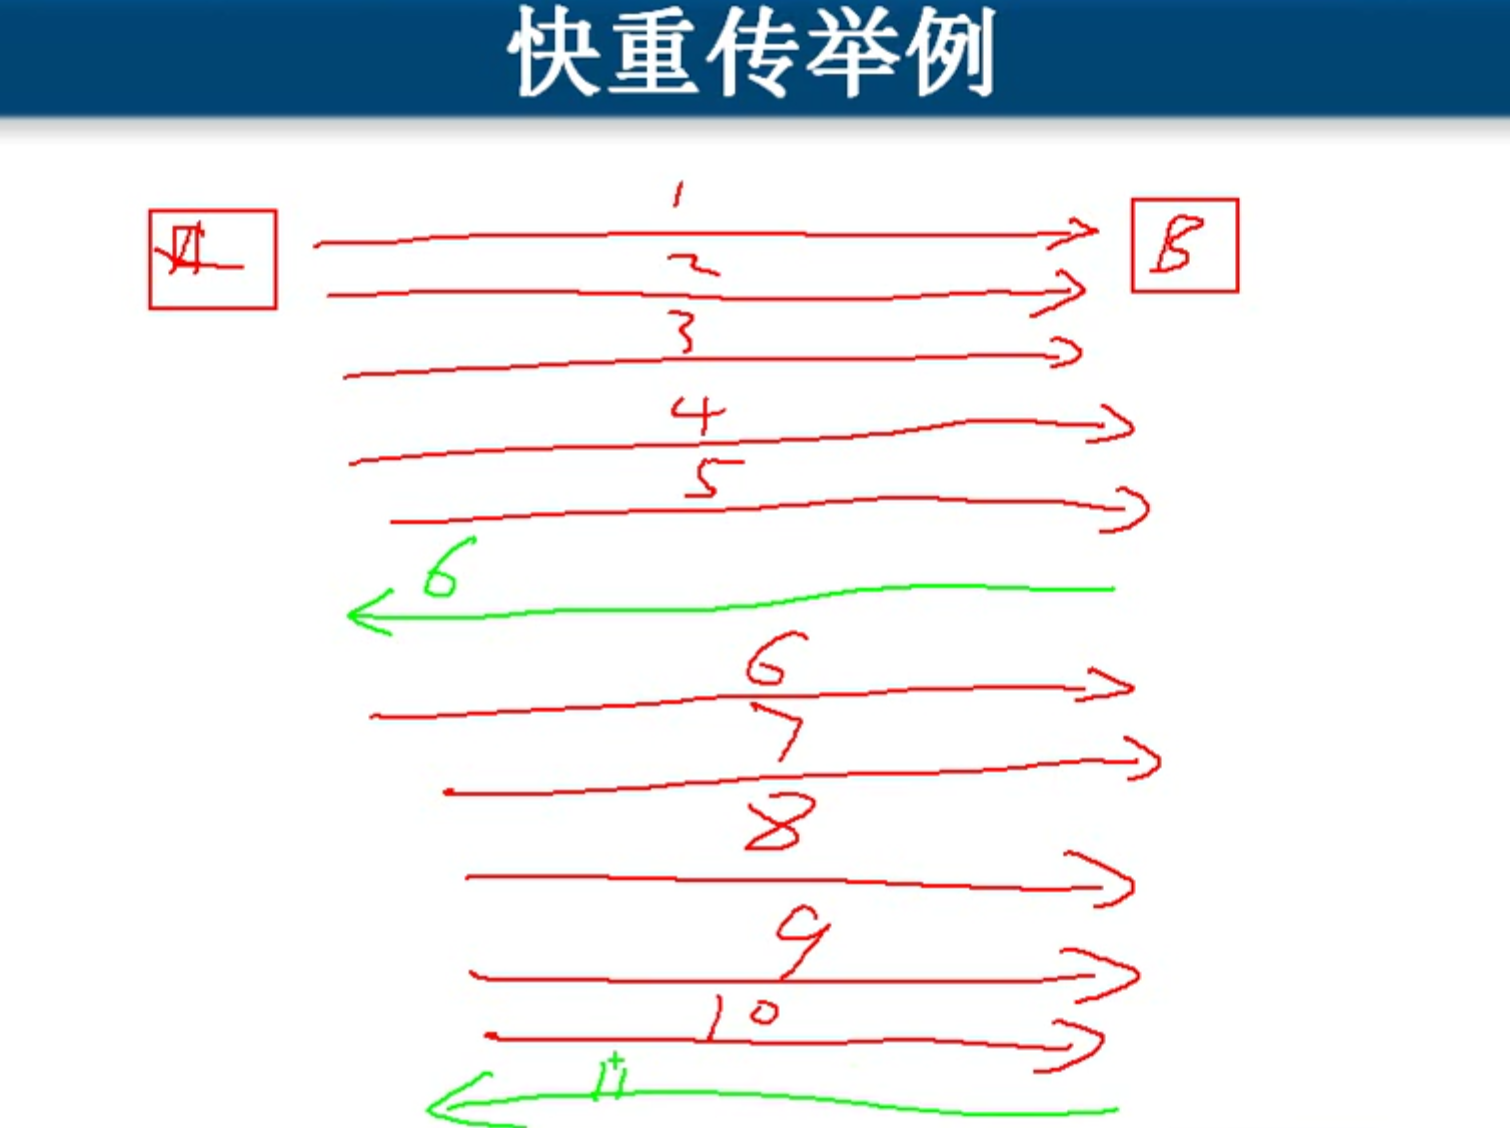 快重传举例
1
B
2
3
4
5
6
6
7
8
9
10
11